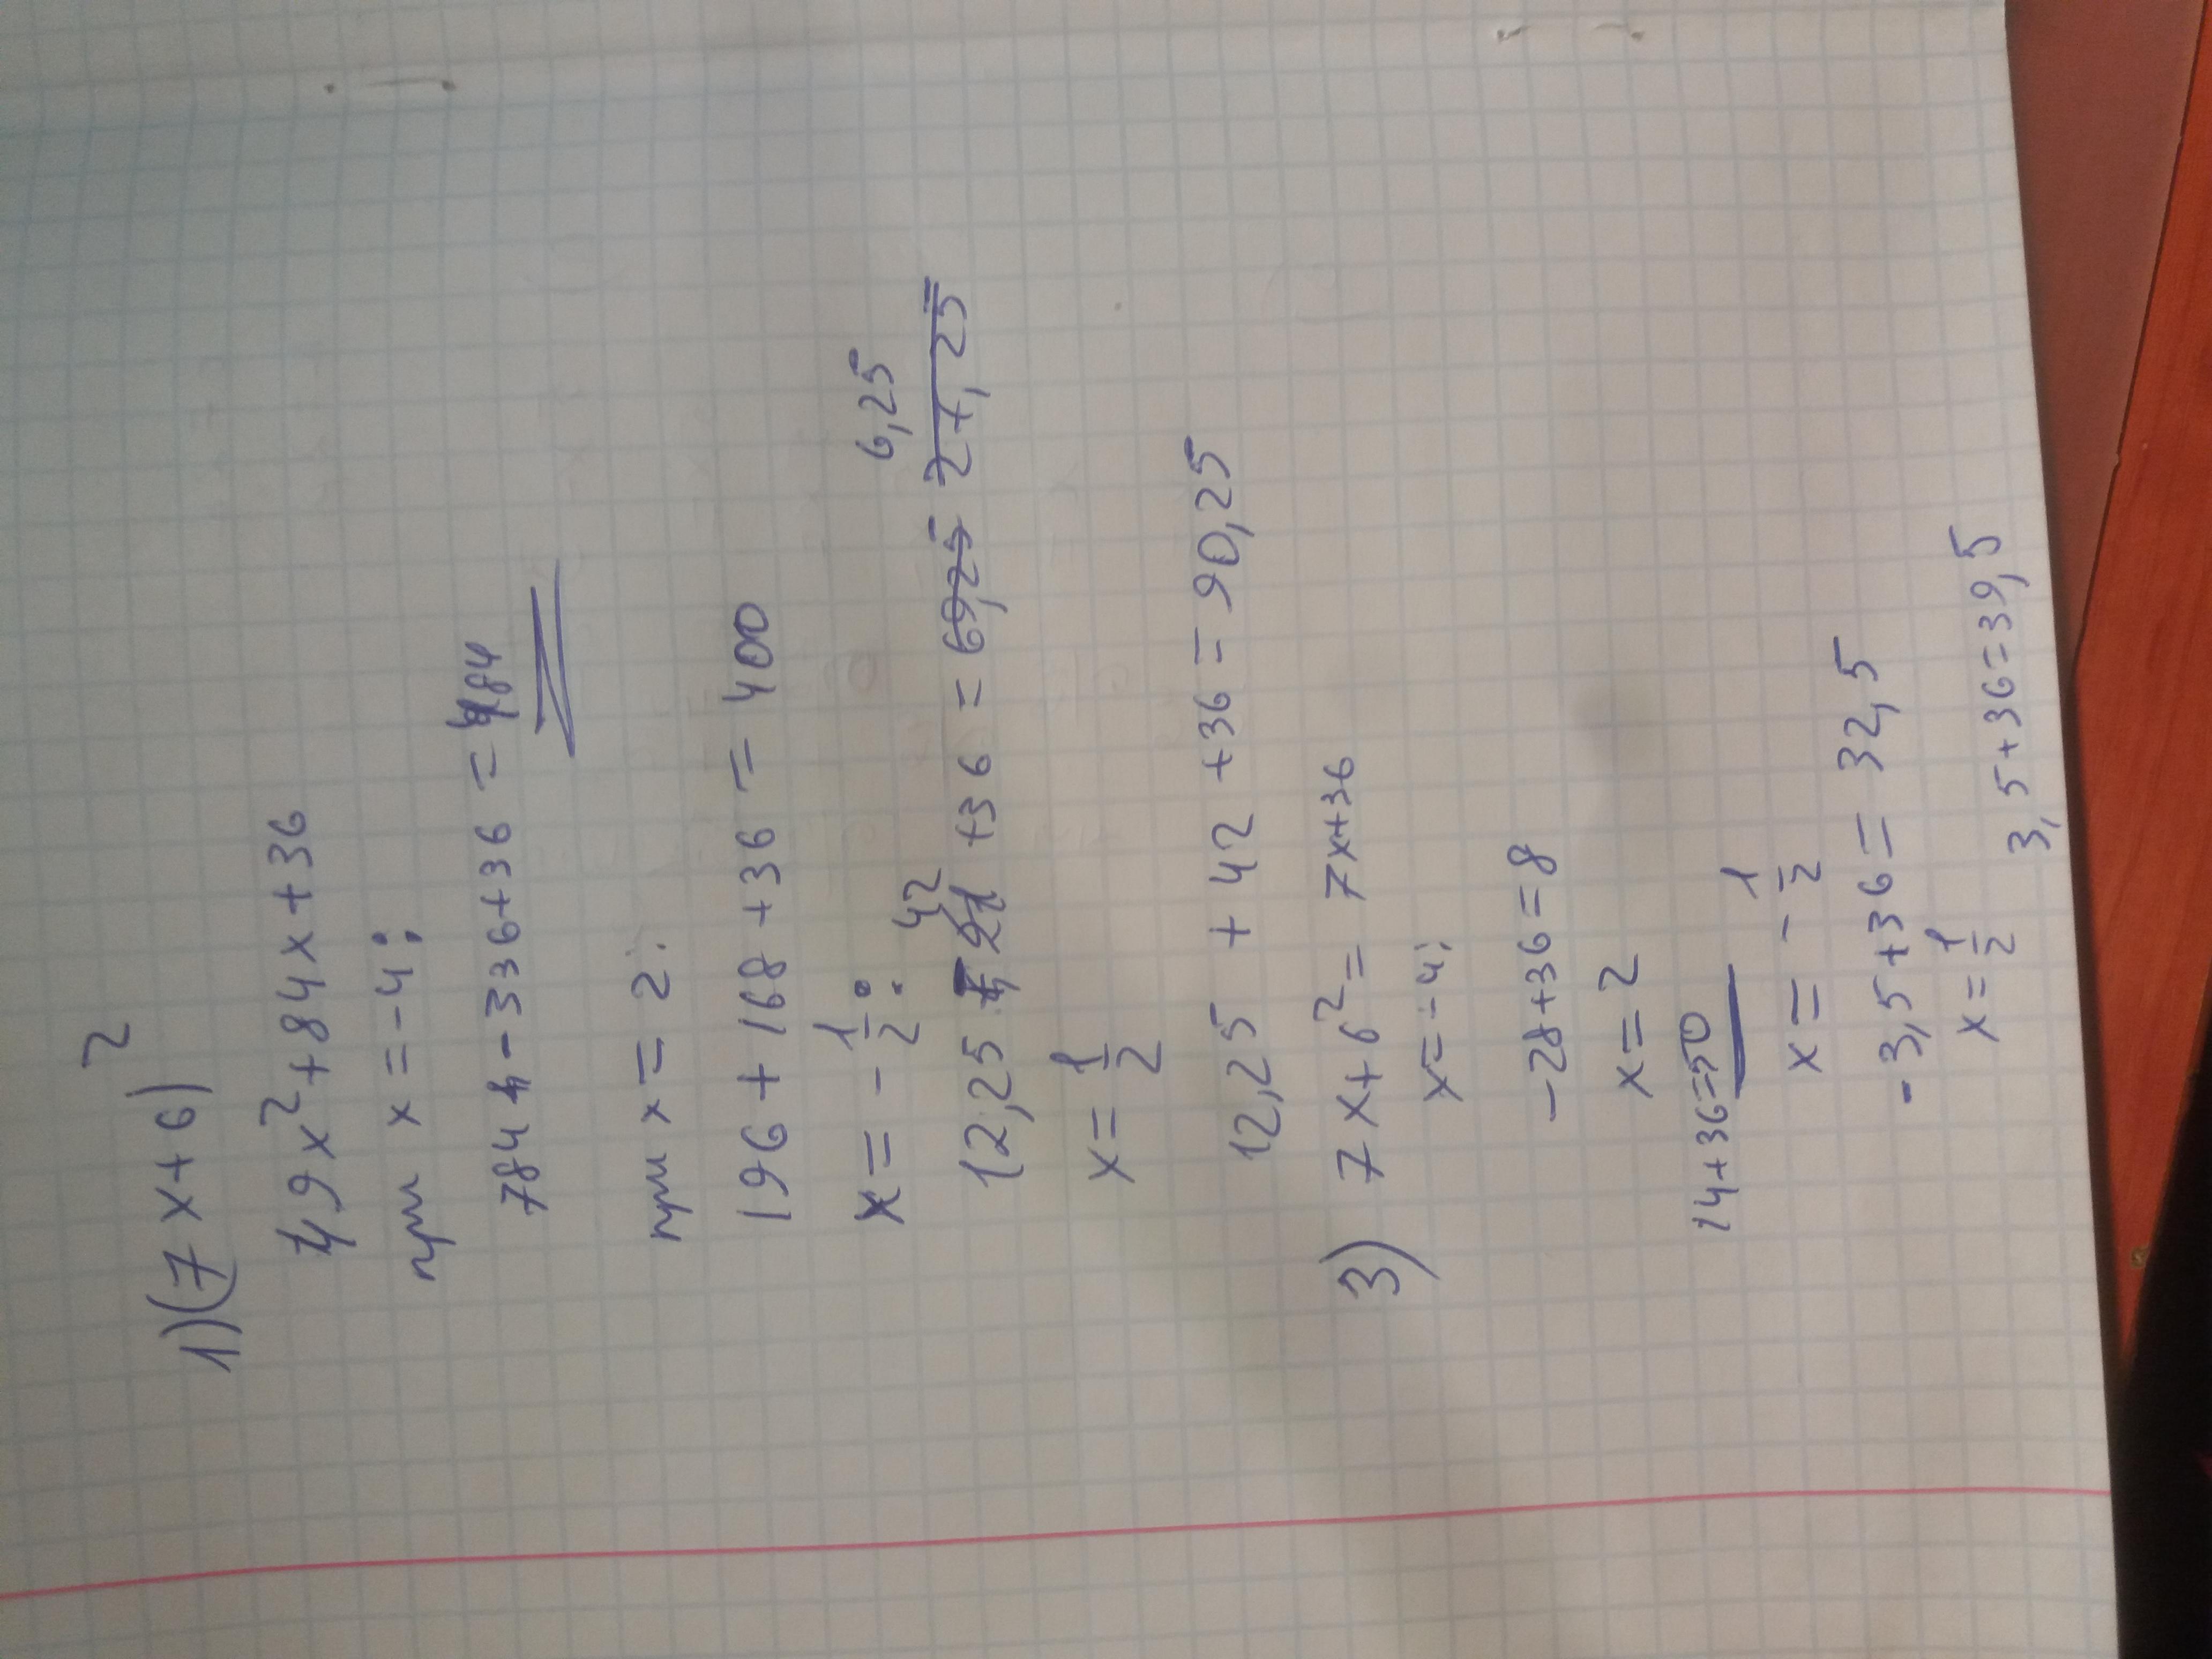 1)(7x+6)²
49x²+84x+36
при x=-4:
784-336+36=484
при x=2:
196+168+36=400
x=-1/2:
6,25
42
12,25-21+36=69,25 27,25
x=1/2
12,25+42+36=90,25
3) 7x+6²=7x+36
x=-4;
-28+36=8
x=2
14+36=50
x=-1/2
-3,5+36=32,5
x=1/2
3,5+36=39,5